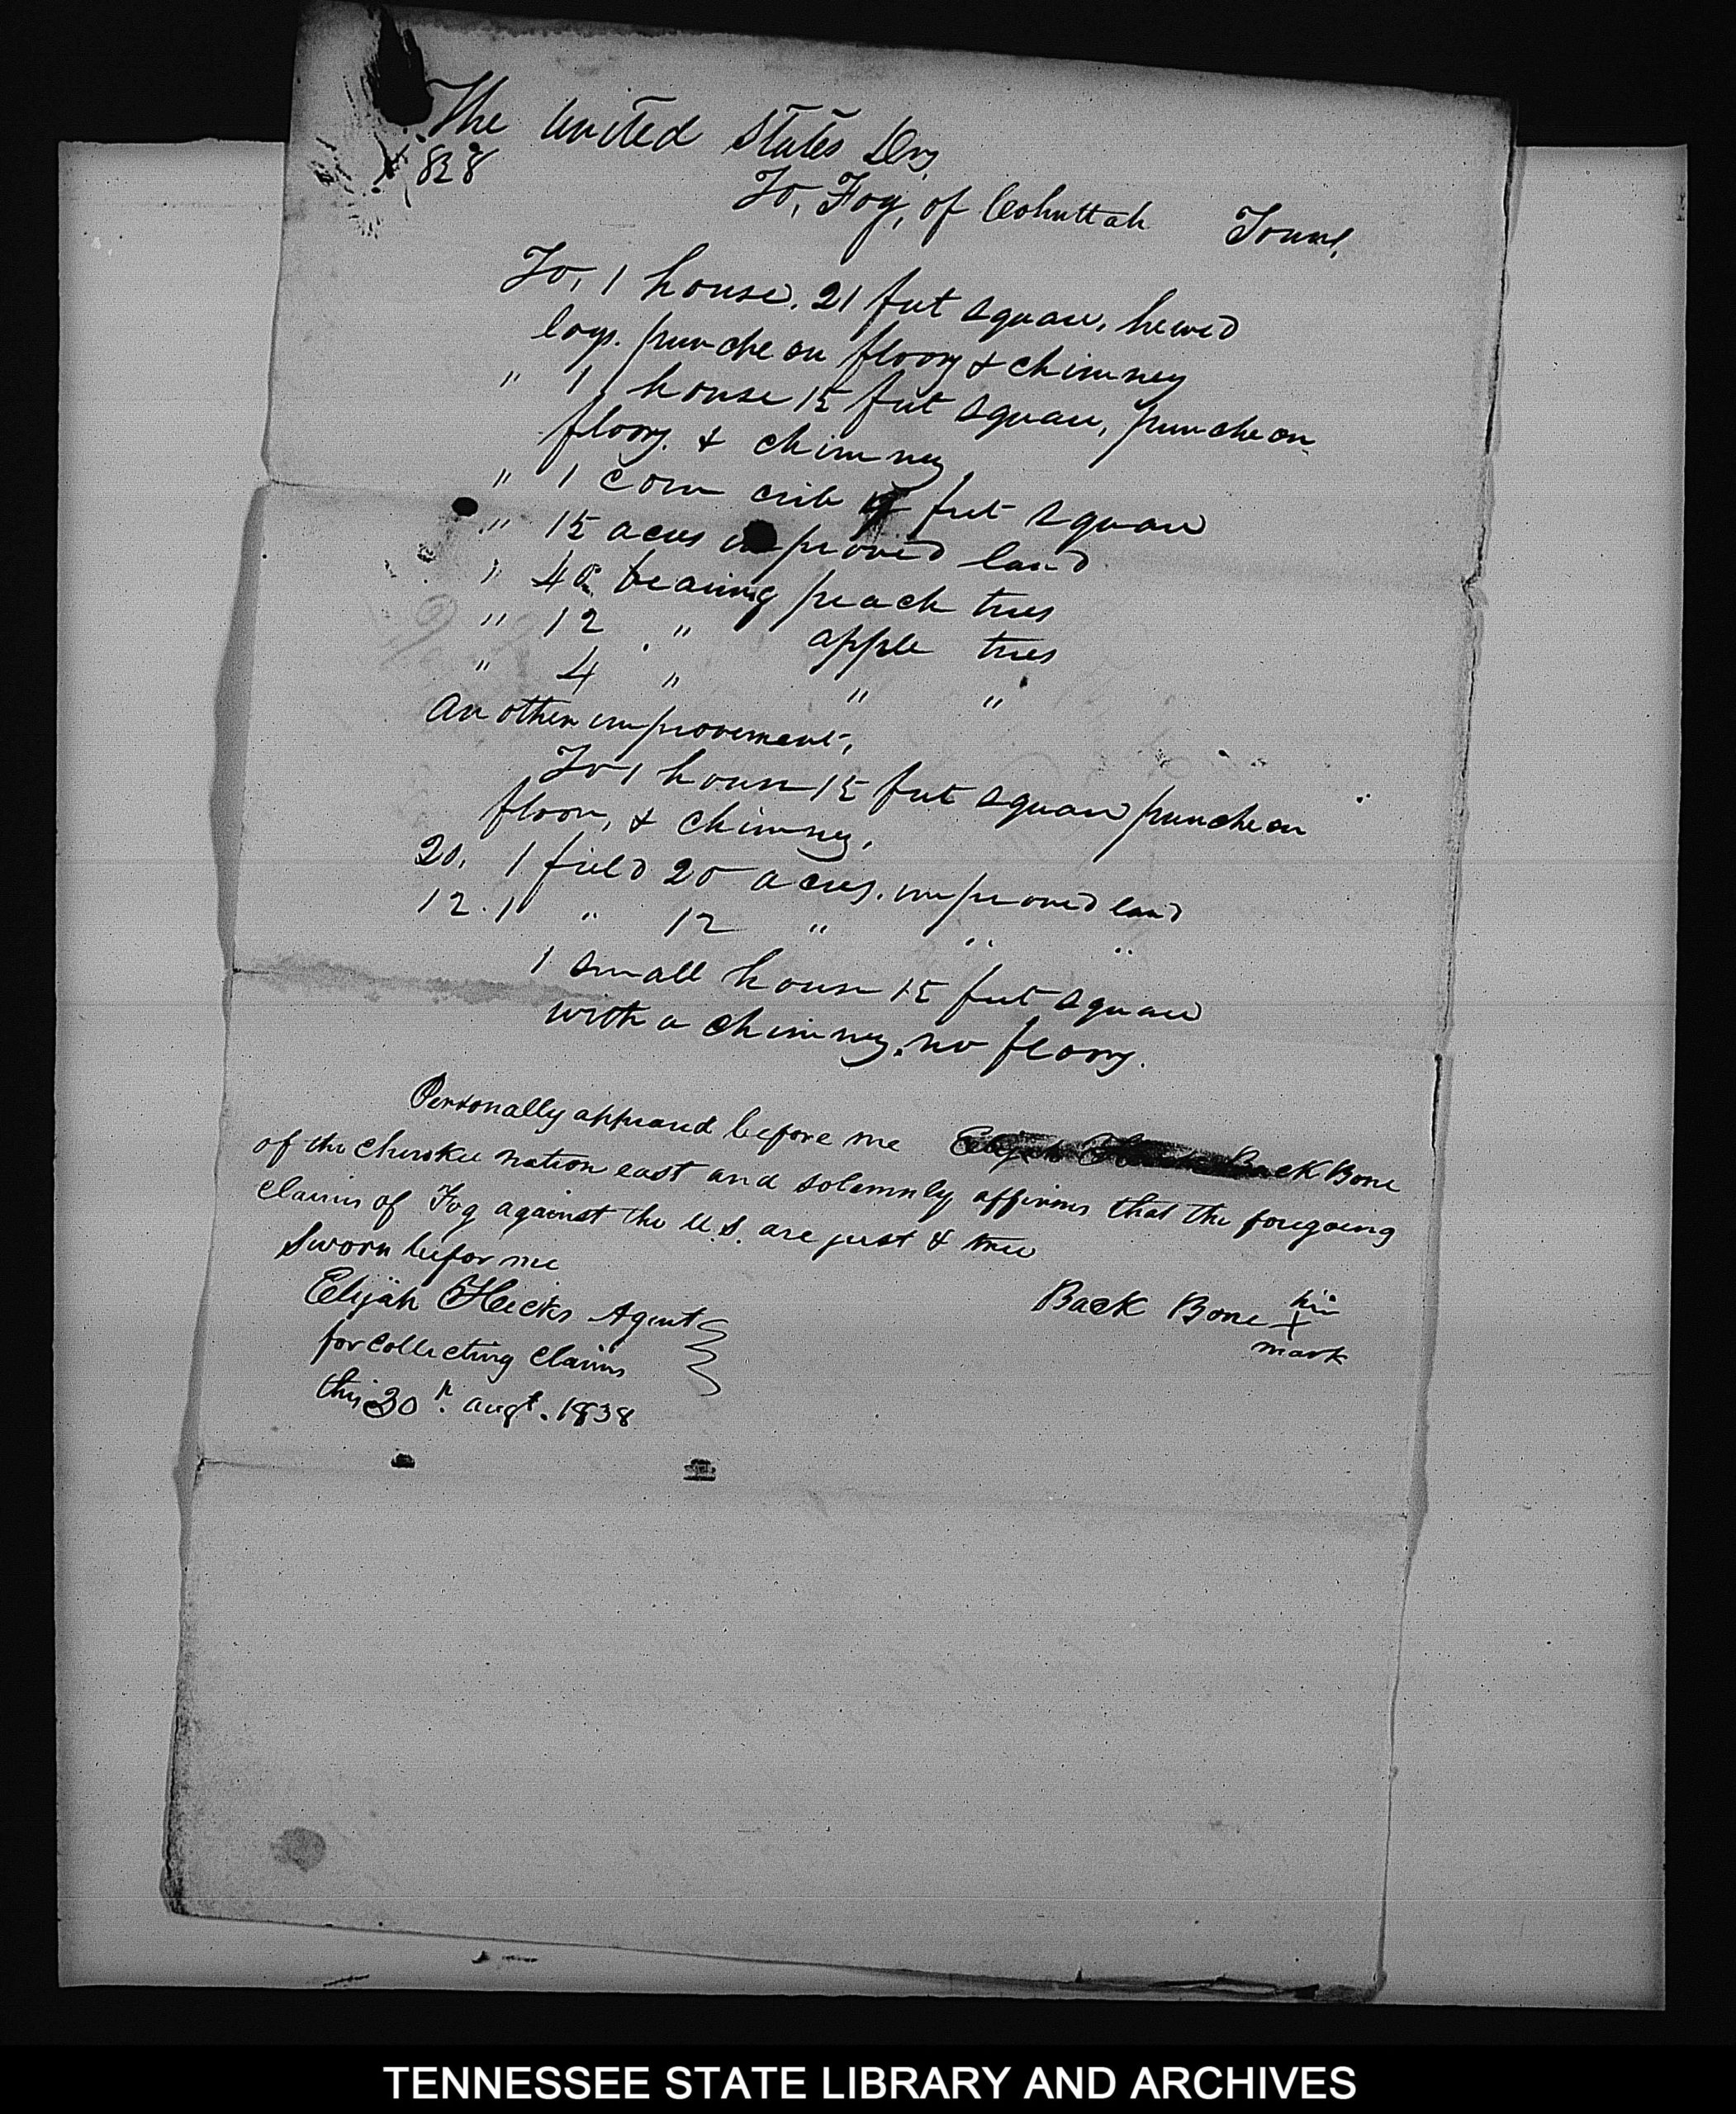 The United States Dr,
1838
To, Fog, of Cohuttah Town,
To, 1 house, 21 feet square, hewed
logs. puncheon floors & chimney
" 1 house 15 feet square, puncheon
floors. & chimney
" 1 corn crib feet square
" 15 acres improved land
" bearing peach trees
" 12 " apple trees
" 4 " " "
An other improvement,
To 1 house 15 feet square puncheon
floor, & chimney,
20, 1 field 20 acres, improved land
12. 1 " 12 " " "
1 small house 15 feet square
with a chimney. no floors.
Personally appeared before me Back Bone
of the Cherokee nation east and solemnly affirms that the foregoing
claims of Fog against the U.S. are just & true
Sworn befor me
Elijah Hicks Agent
for collecting claims
this 30th. augt. 1838
Back Bone his
X
mark
TENNESSEE STATE LIBRARY AND ARCHIVES